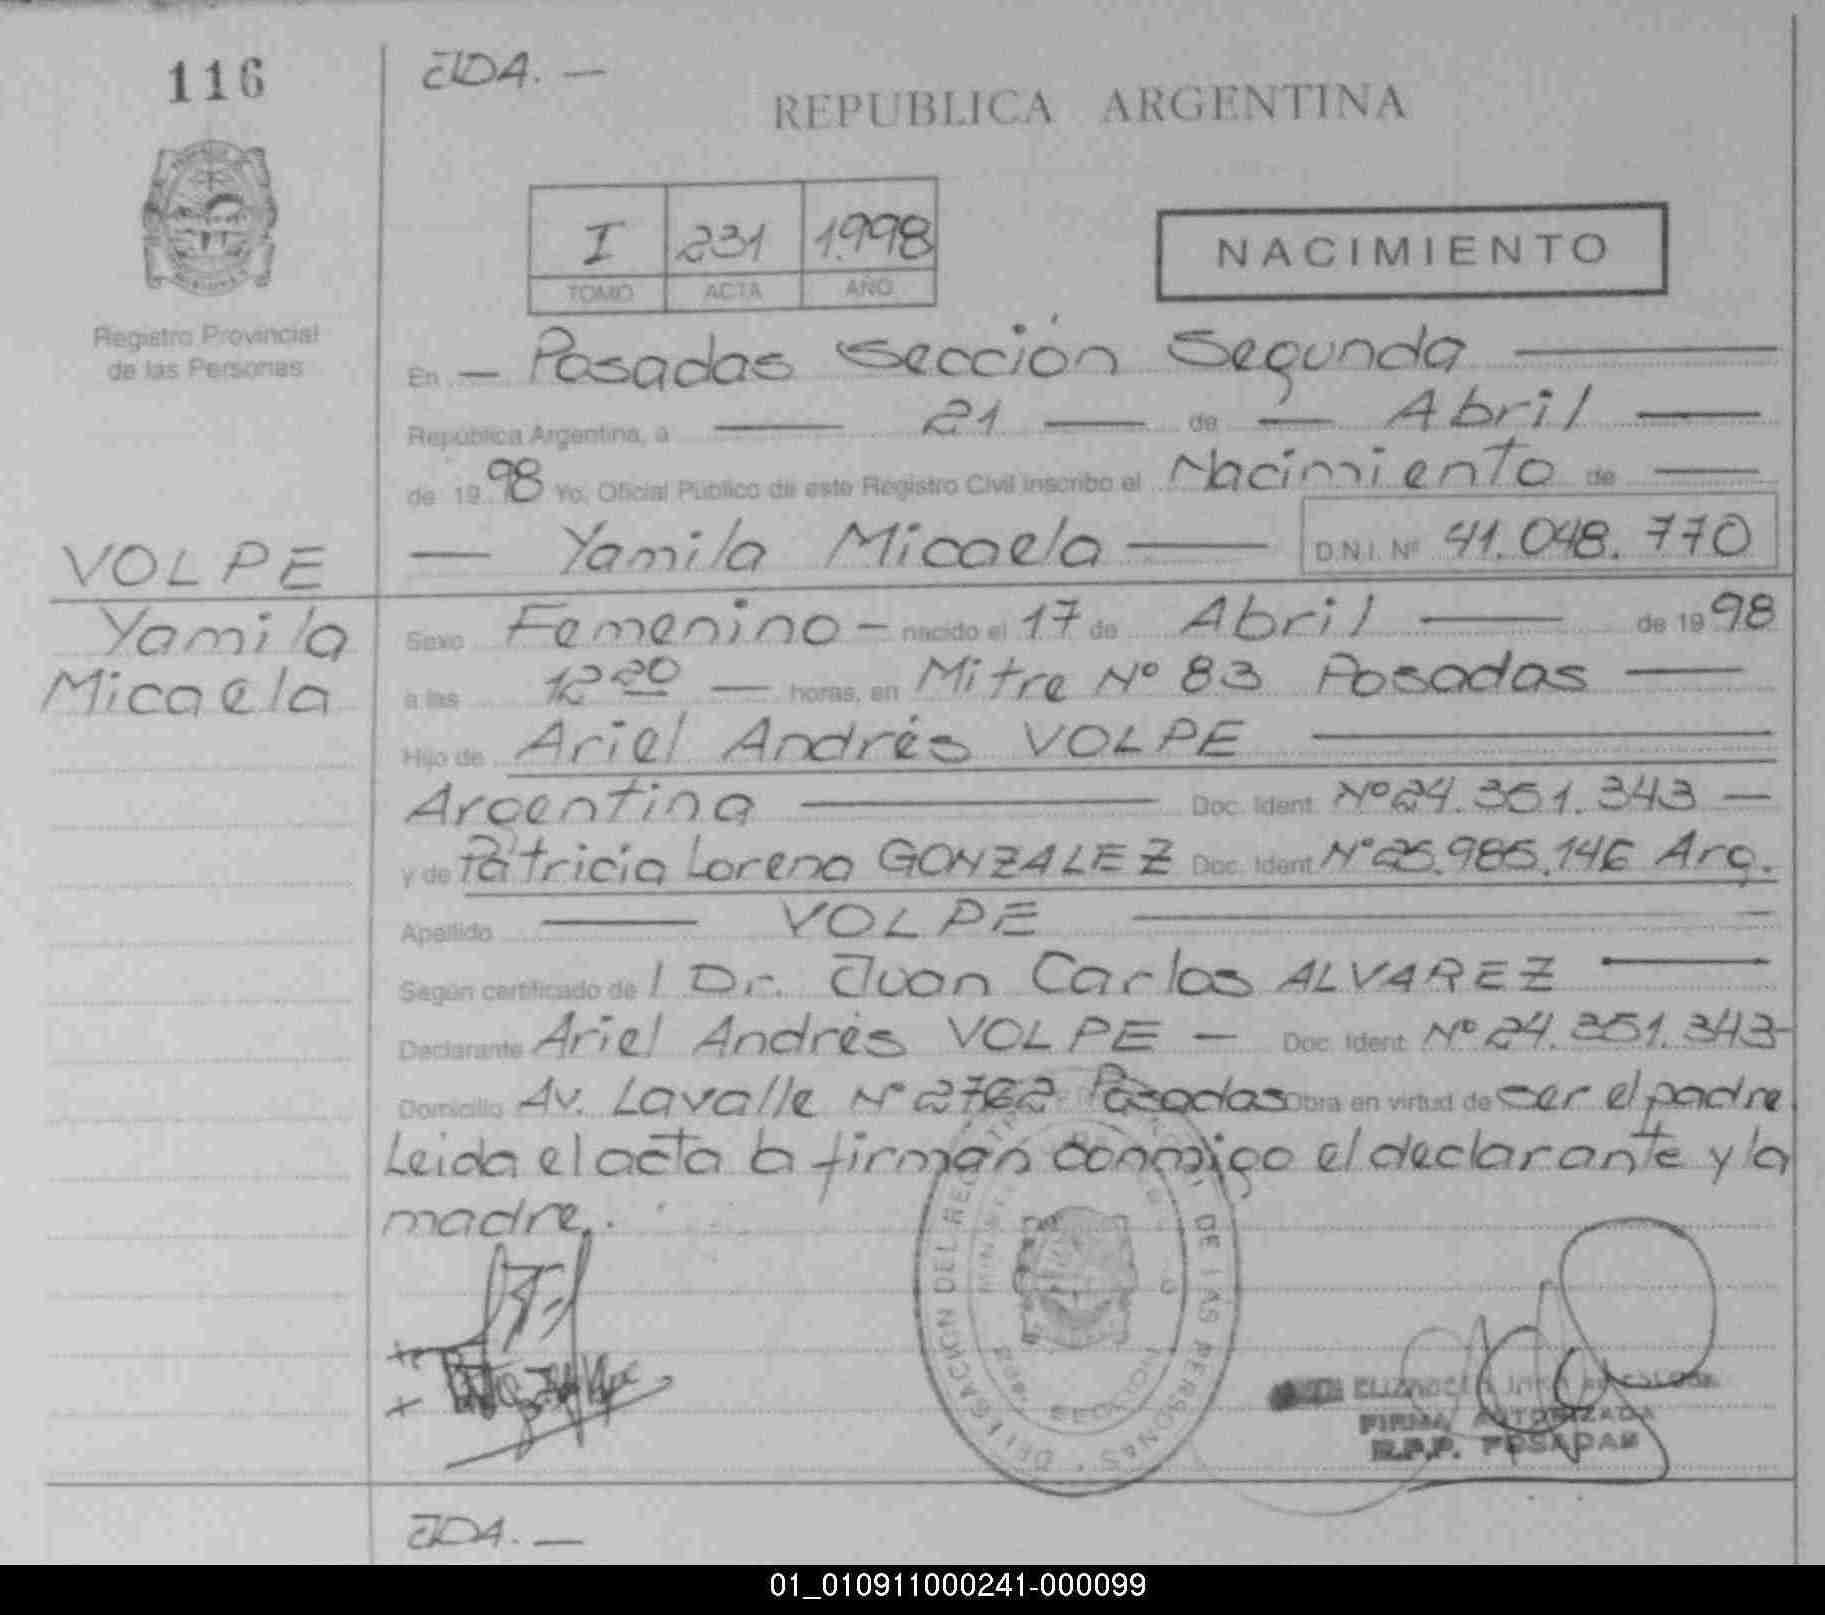 116
JDA. —
REPUBLICA ARGENTINA
I 231 1.998
TOMO ACTA AÑO
NACIMIENTO
Registro Provincial
de las Personas
En — Posadas Sección Segunda
República Argentina, a 21 de Abril
de 19 98 Yo, Oficial Público de este Registro Civil inscribo el Nacimiento de
VOLPE
Yamila
Micaela
Yamila Micaela D.N.I. Nº 41.048.770
Sexo Femenino — nacido el 17 de Abril de 19 98
a las 12 20 — horas, en Mitre Nº 83 Posadas
Hijo de Ariel Andrés VOLPE
Argentina Doc. Ident. Nº 24.351.343 —
y de Patricia Lorena GONZALEZ Doc. Ident. Nº 25.985.146 Arg.
Apellido VOLPE
Según certificado de l Dr. Juan Carlos ALVAREZ
Declarante Ariel Andrés VOLPE — Doc. Ident. Nº 24.351.343-
Domicilio Av. Lavalle Nº 2762 Posadas Obra en virtud de ser el padre.
Leida el acta la firman conmigo el declarante y la
madre.
DELEGACION DEL REGISTRO DE LAS PERSONAS
FIRMA AUTORIZADA
R.P.P. POSADAS
JDA. —
01_010911000241-000099